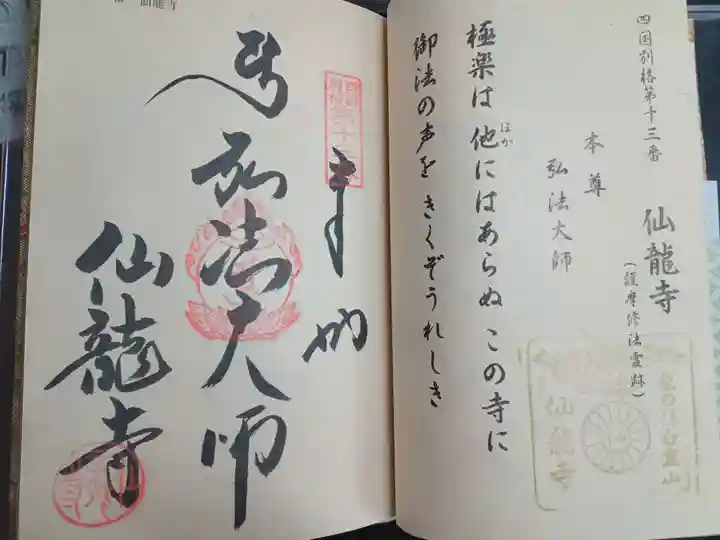 四国別格第十三番
仙龍寺
(護摩修法霊跡)
本尊
弘法大師
極楽は他にはあらぬこの寺に
ほか
御法の声をきくぞうれしき
仙龍寺
奉
弘法大師
仙龍寺
仙龍寺